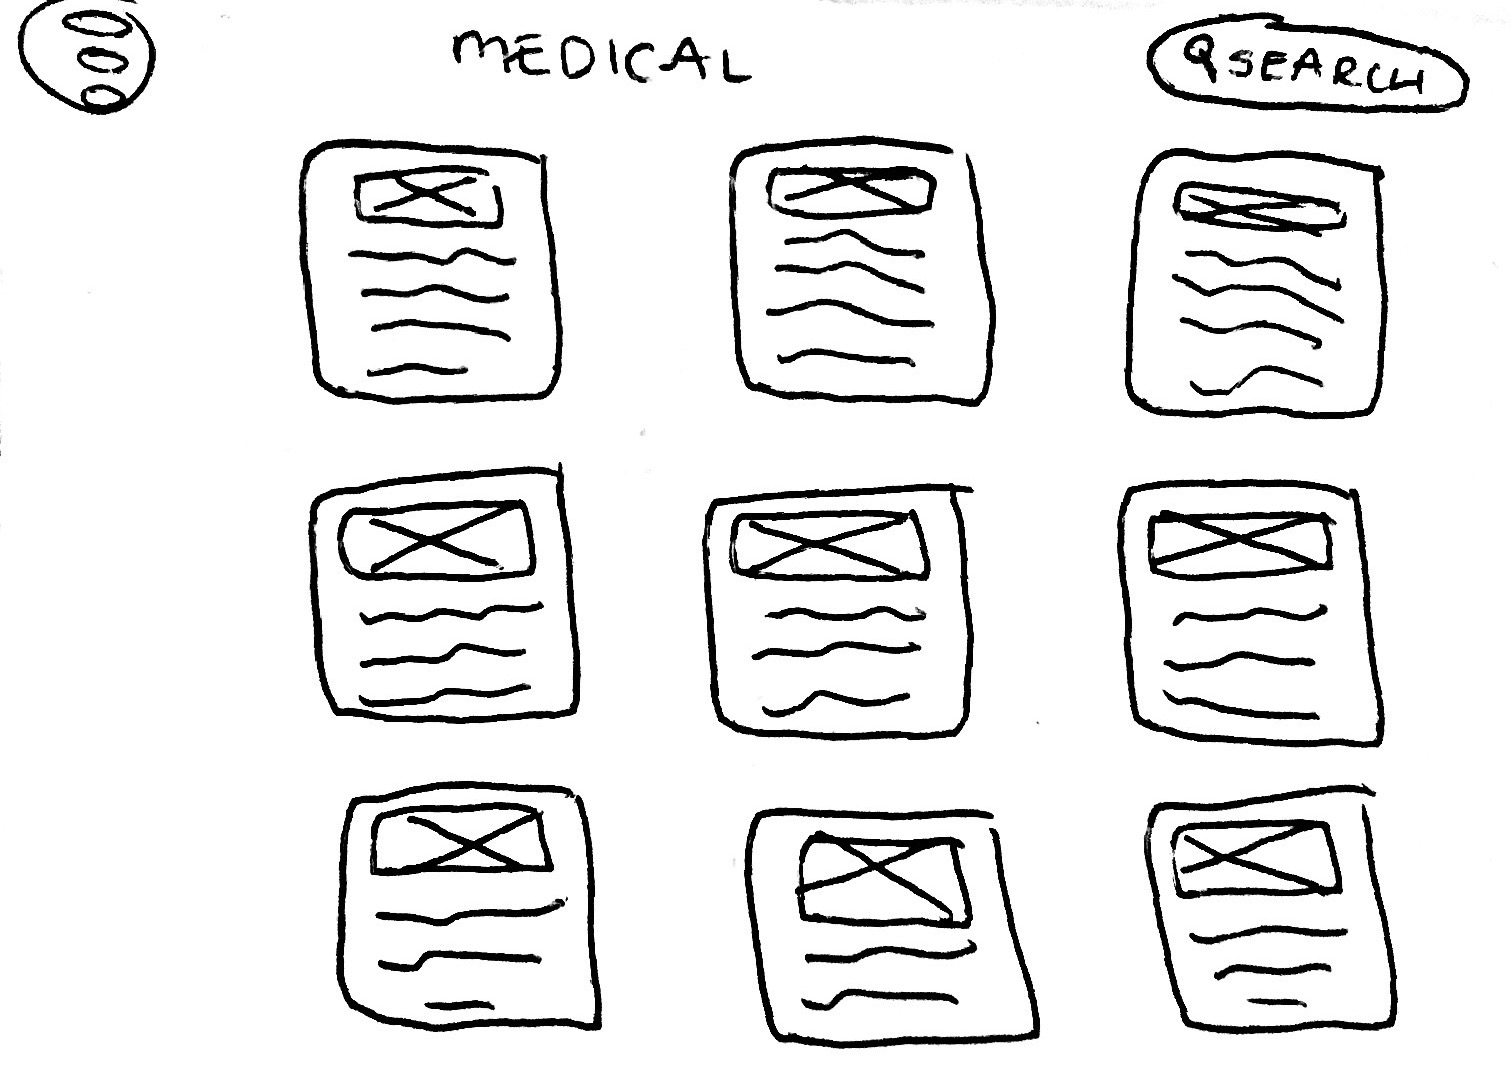 MEDICAL
SEARCH